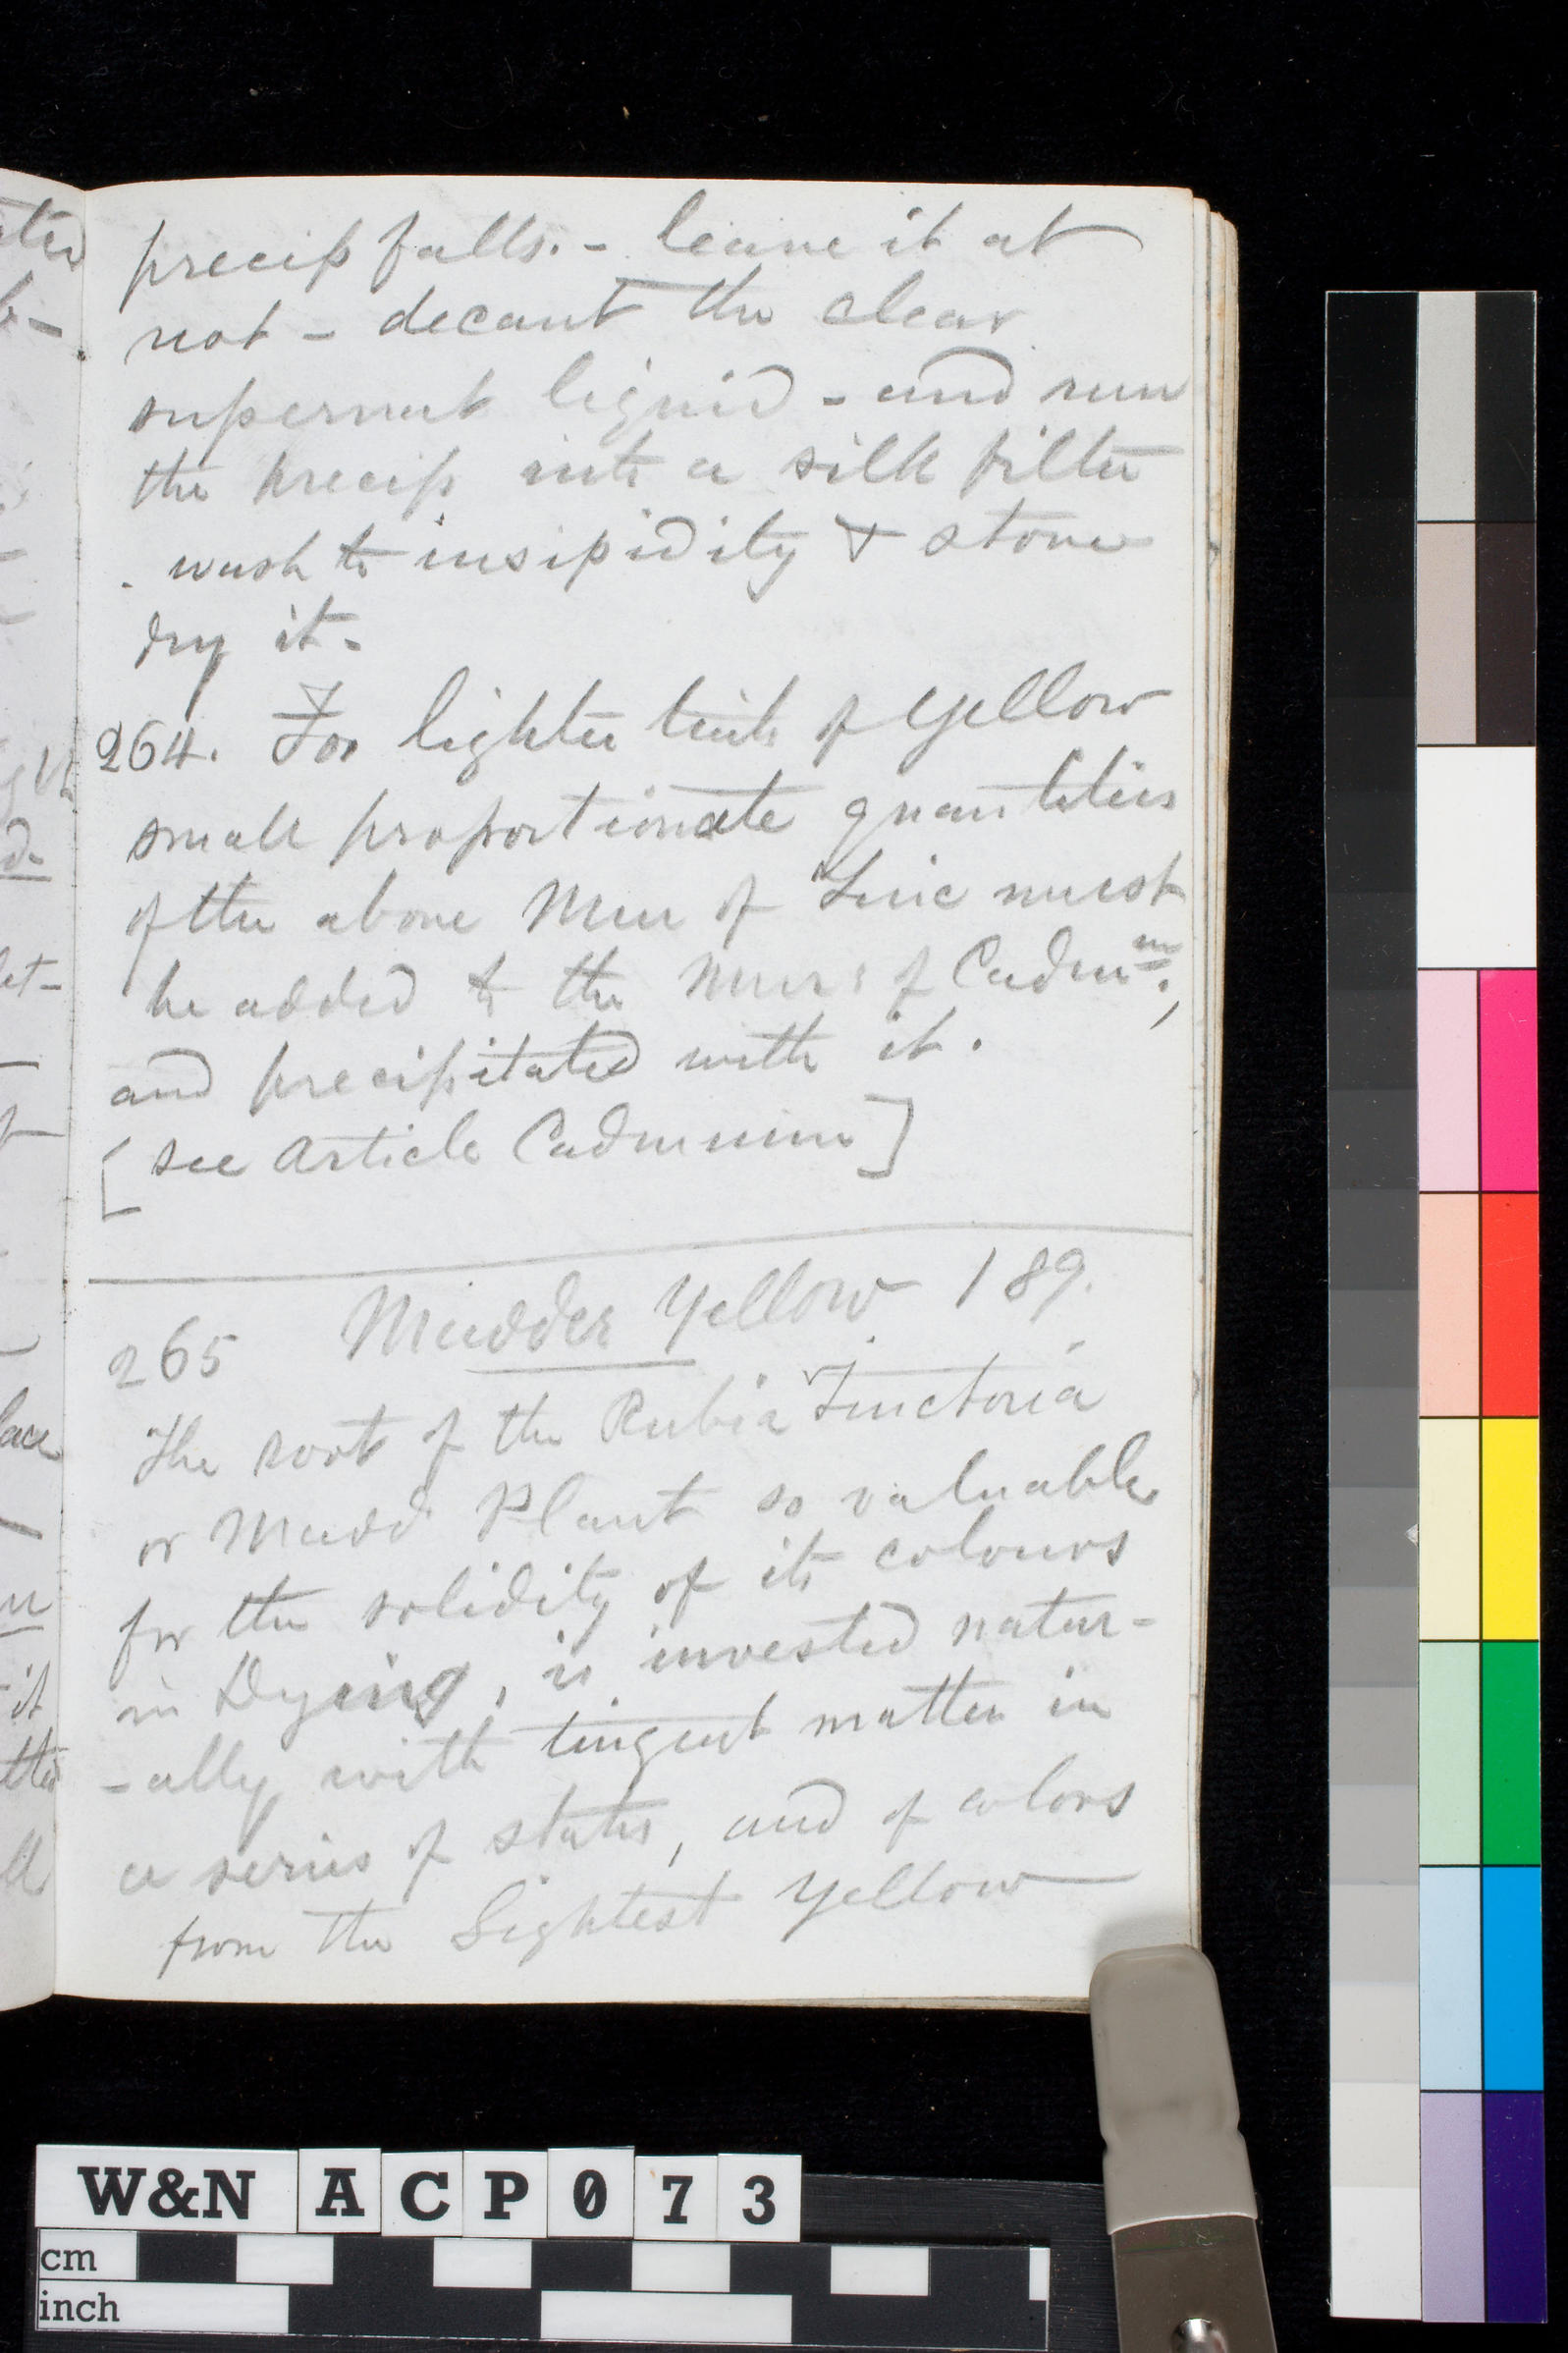 precip falls. - leave it at
rest - decant the clear
supernat liquid - and run
the precip into a silk filter
. wash to insipidity & stove
dry it -
264. For lighter tints of Yellow
small proportionate quantities
of the above Mur of Zinc must
be added to the Mur: of Cadmm.,
and precipitated with it.
[see Article Cadmium]
265 Madder Yellow 189.
The root of the Rubia Tinctoria
or Madd Plant so valuable
for the solidity of its colours
in Dying, is invested natur-
-ally with tingent matter in
a series of states, and of colors
from the Lightest Yellow
W&N ACP073
cm
inch